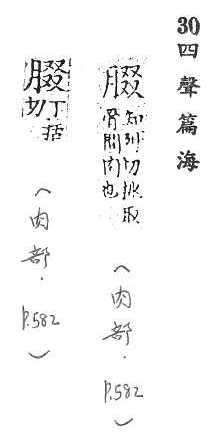 30四聲篇海
腏
知列切挑取
骨間肉也
(肉部.P.582)
腏
丁括
切
(肉部.P.582)